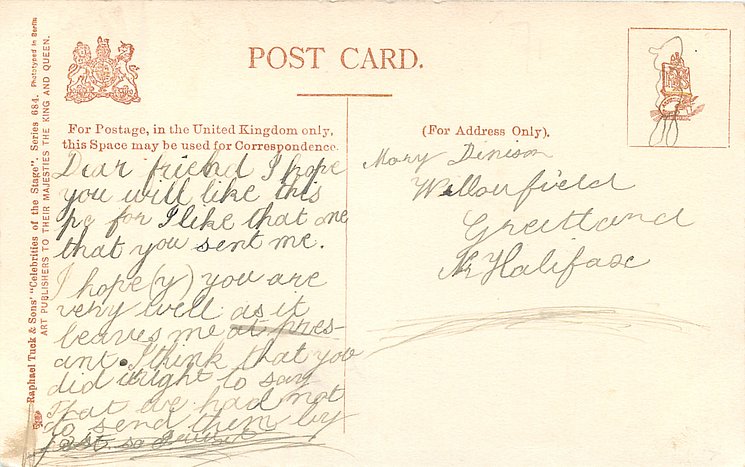 Raphael Tuck & Sons' "Celebrities of the Stage". Series 684. Phototyped in Berlin
ART PUBLISHERS TO THEIR MAJESTIES THE KING AND QUEEN.
POST CARD.
For Postage, in the United Kingdom only,
this Space may be used for Correspondence.
Dear friend I hope
you will like this
pc for I like that one
that you sent me.
I hope (y) you are
very well as it
leaves me at pres-
ant. I think that you
did wright to say
that we had not
to send them by
post so
(For Address Only).
Mary Denison
Willowfield
Greetland
Nr Halifax